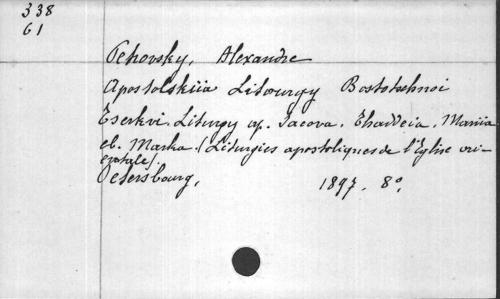 338
61
Petrovsky, Alexandre
Apostolskiia Litourgy Bostotschnoi
Tserkvi. Liturgy ap. Iacova. Thaddeia. Mariia
et. Marka. (Liturgies apostoliques de l'Eglise ori-
entale).
Petersbourg, 1897. 8°.